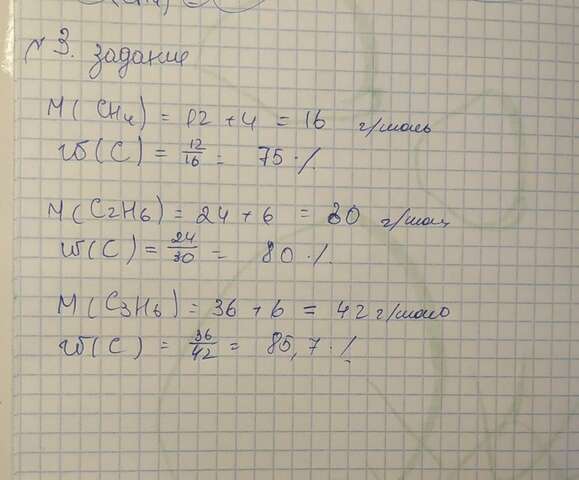 № 3. задание
M(CH4) = 12 + 4 = 16 г/моль
w(C) = 12/16 = 75 %
M(C2H6) = 24 + 6 = 30 г/мол
w(C) = 24/30 = 80 %
M(C3H6) = 36 + 6 = 42 г/моль
w(C) = 36/42 = 85,7 %